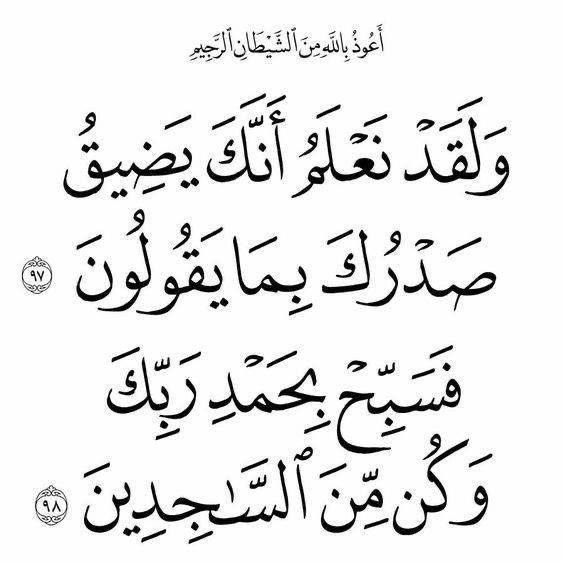 أَعُوذُ بِاللَّهِ مِنَ ٱلشَّيْطَانِ ٱلرَّجِيمِ
وَلَقَدْ نَعْلَمُ أَنَّكَ يَضِيقُ
صَدْرُكَ بِمَا يَقُولُونَ ٩٧
فَسَبِّحْ بِحَمْدِ رَبِّكَ
وَكُن مِّنَ ٱلسَّـٰجِدِينَ ٩٨